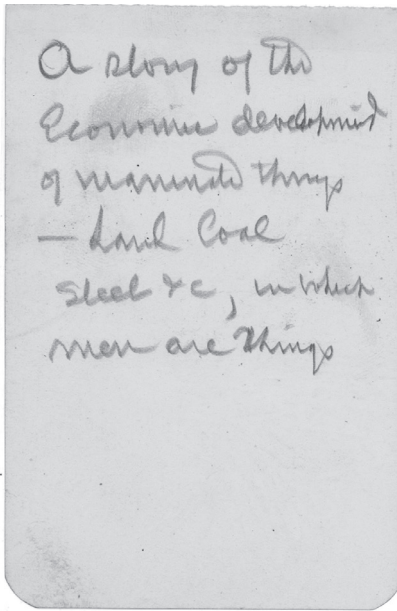 A story of the
Economic development
of inanimate things
— Land Coal
Steel &c, in which
men are things